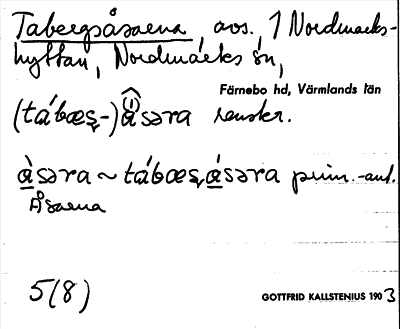 Tabergsåsarna, avs. i Nordmarks-
hyttan, Nordmarks sn,
Färnebo hd, Värmlands län
(tábæș-) åsəra renskr.
àsəra ~ tábæșásəra prim.-ant.
Åsarna
5(8)
GOTTFRID KALLSTENIUS 1903